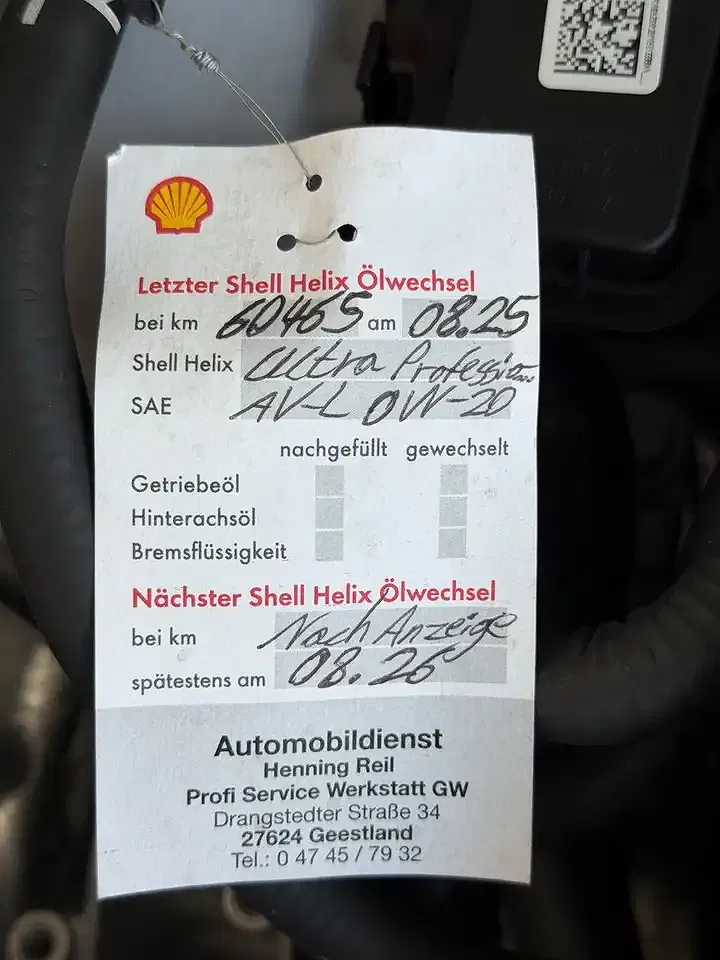 Letzter Shell Helix Ölwechsel
bei km 60465 am 08.25
Shell Helix Ultra Profession
SAE AV-L 0W-20
nachgefüllt gewechselt
Getriebeöl
Hinterachsöl
Bremsflüssigkeit
Nächster Shell Helix Ölwechsel
bei km Nach Anzeige
spätestens am 08.26
Automobildienst
Henning Reil
Profi Service Werkstatt GW
Drangstedter Straße 34
27624 Geestland
Tel.: 0 47 45 / 79 32